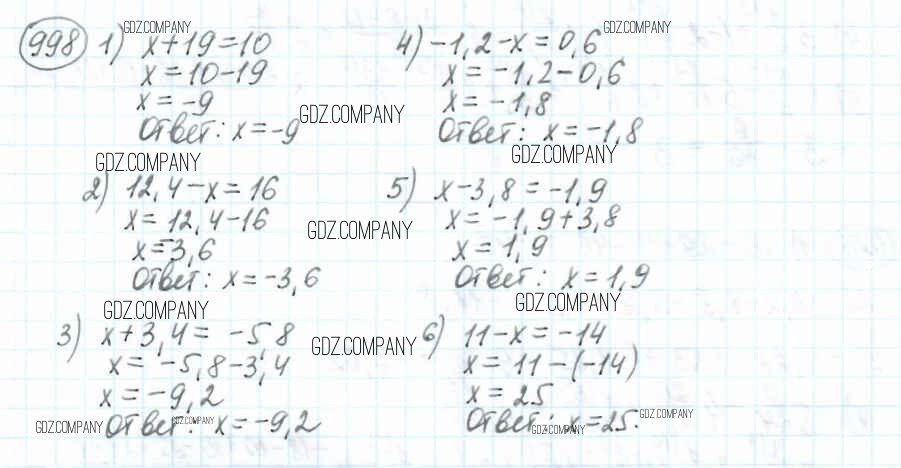 998 1) x+19=10
x=10-19
x=-9
Ответ: x=-9
2) 12,4-x=16
x=12,4-16
x=-3,6
Ответ: x=-3,6
3) x+3,4=-5,8
x=-5,8-3,4
x=-9,2
Ответ: x=-9,2
4) -1,2-x=0,6
x=-1,2-0,6
x=-1,8
Ответ: x=-1,8
5) x-3,8=-1,9
x=-1,9+3,8
x=1,9
Ответ: x=1,9
6) 11-x=-14
x=11-(-14)
x=25
Ответ: x=25.
GDZ.COMPANY
GDZ.COMPANY
GDZ.COMPANY
GDZ.COMPANY
GDZ.COMPANY
GDZ.COMPANY
GDZ.COMPANY
GDZ.COMPANY
GDZ.COMPANY
GDZ.COMPANY
GDZ.COMPANY
GDZ.COMPANY
GDZ.COMPANY